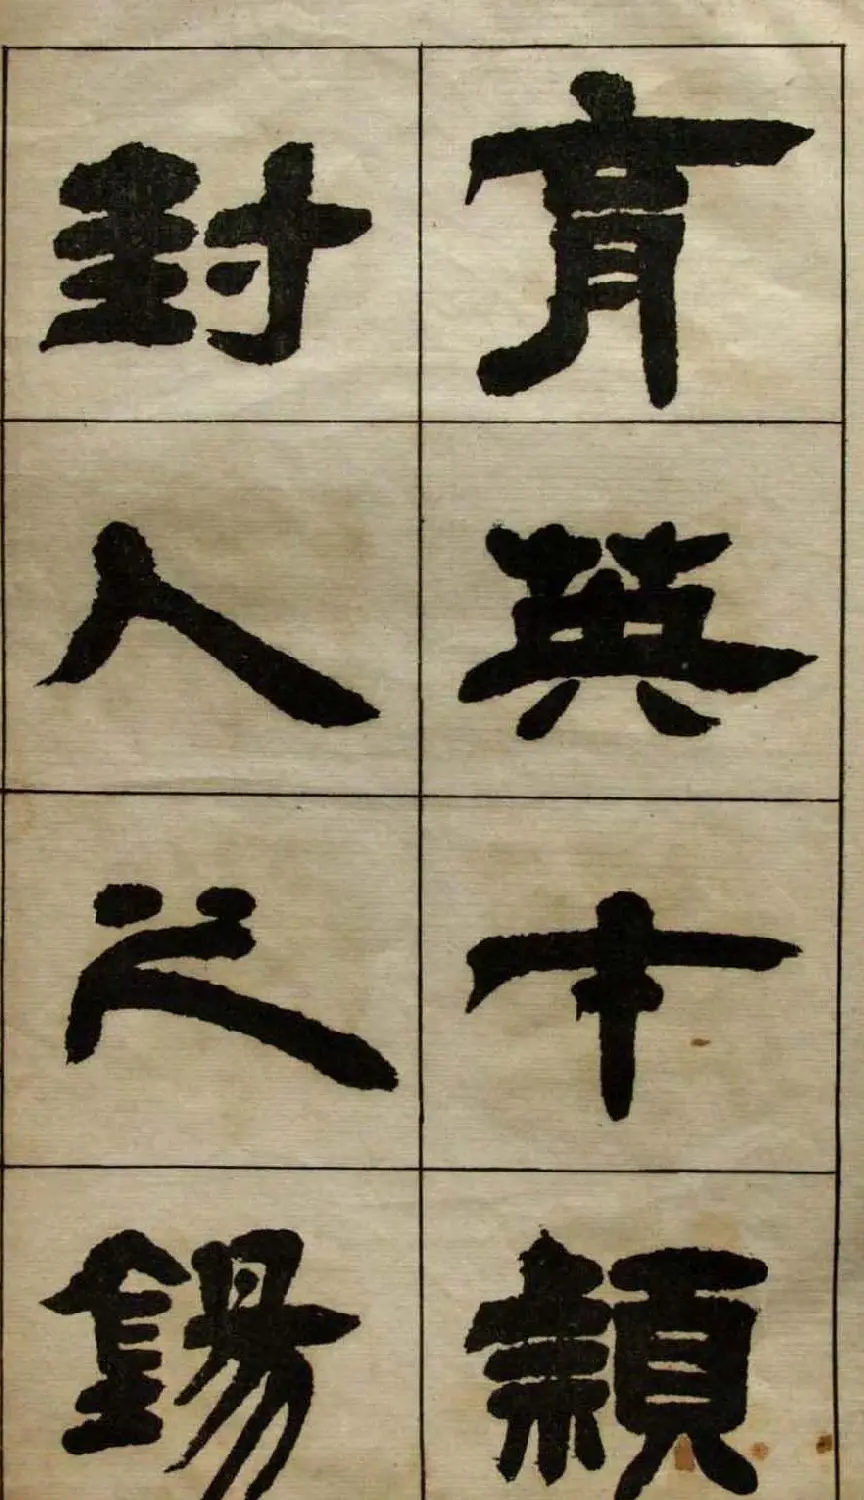 育英才穎
封人之錫